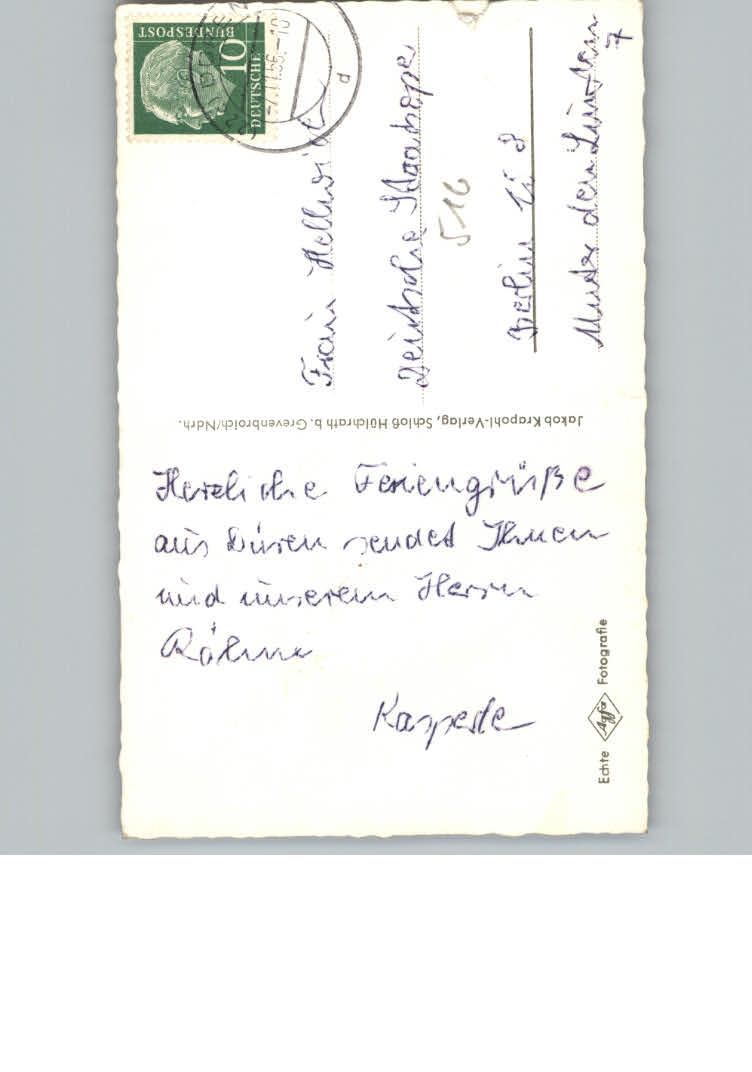 Herzliche Feriengrüße
aus Düren sendet Ihnen
und unserem Herrn
Röhm
Kasperle
Jakob Krapohl-Verlag, Schloß Hülchrath b. Grevenbroich/Ndrh.
Echte Agfa Fotografie
DEUTSCHE
BUNDESPOST
10
-7.11.56.-10
d
Frau Hellwig
Deutsche Staatsoper
516
Berlin W 8
Unter den Linden
7